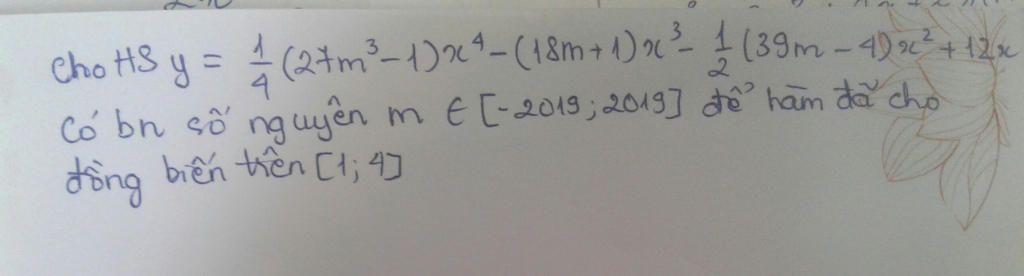 Cho HS y = 1/4 (27m³ - 1)x⁴ - (18m + 1)x³ - 1/2 (39m - 4)x² + 12x
Có bn số nguyên m ∈ [-2019; 2019] để hàm đã cho
đồng biến trên [1; 4]